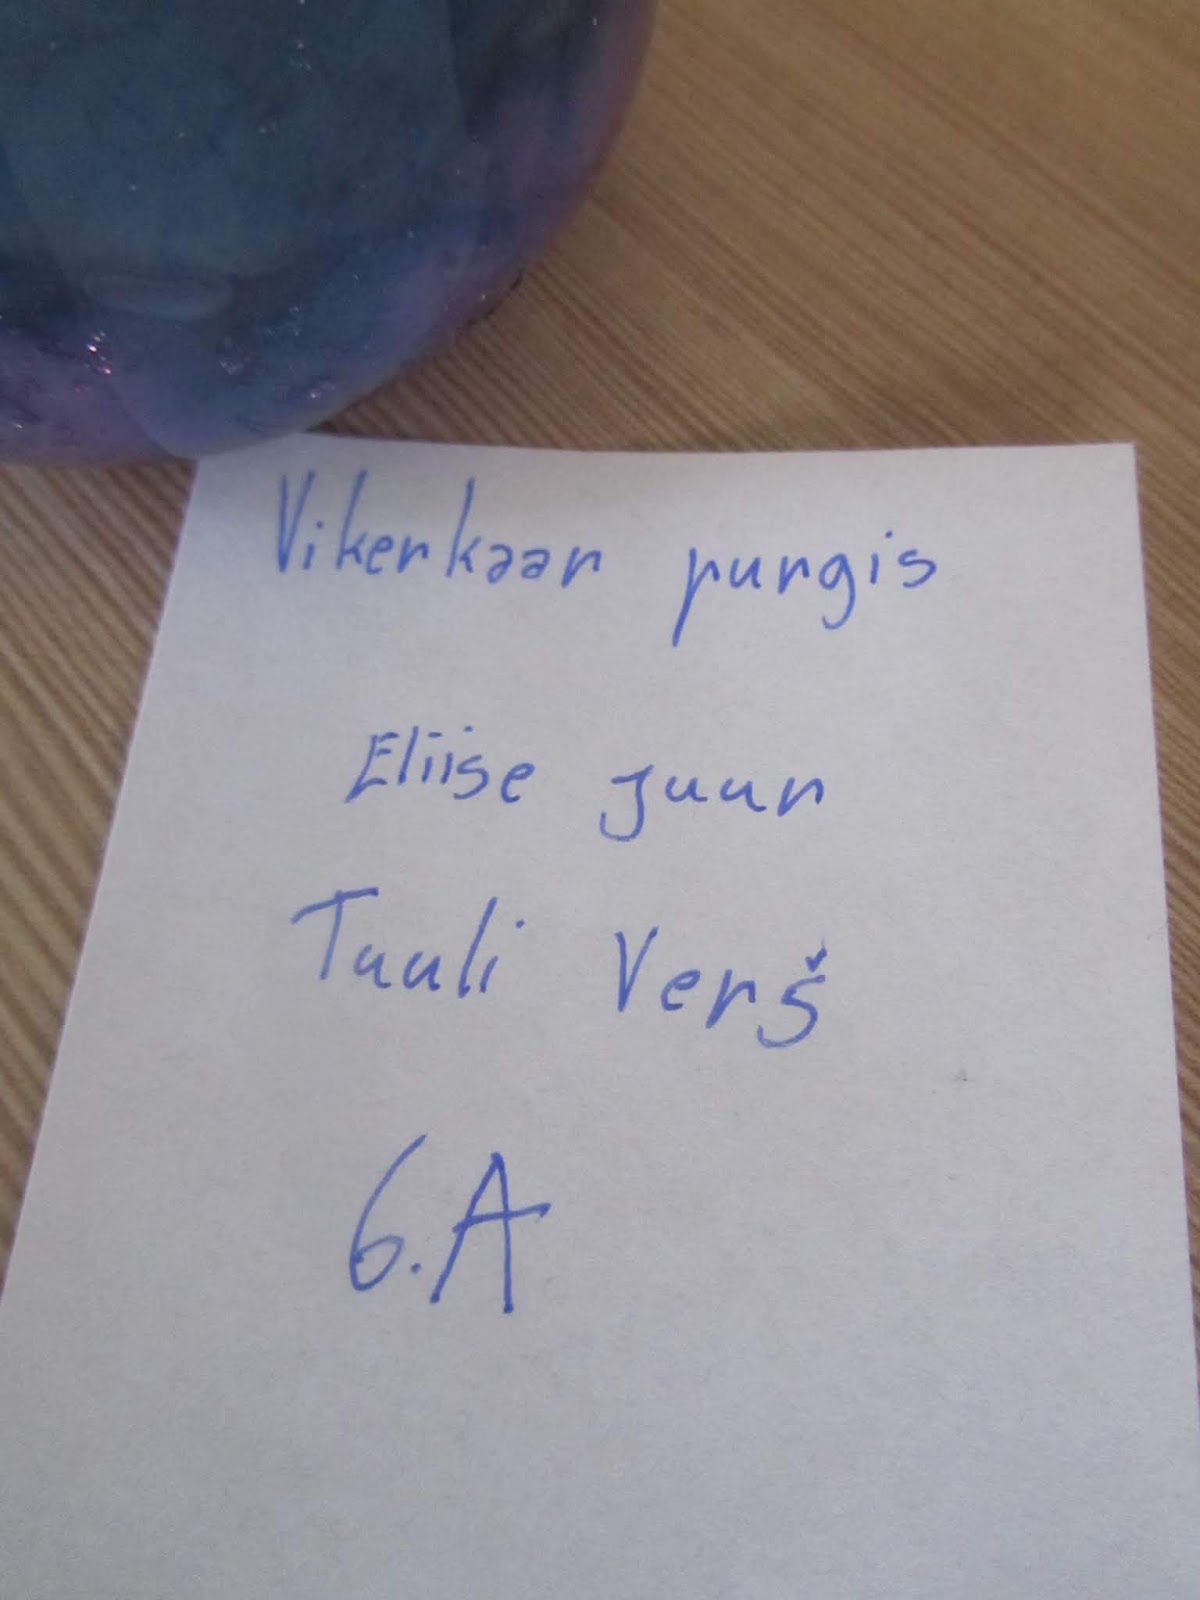 Vikerkaar purgis
Eliise Juur
Tuuli Verš
6.A